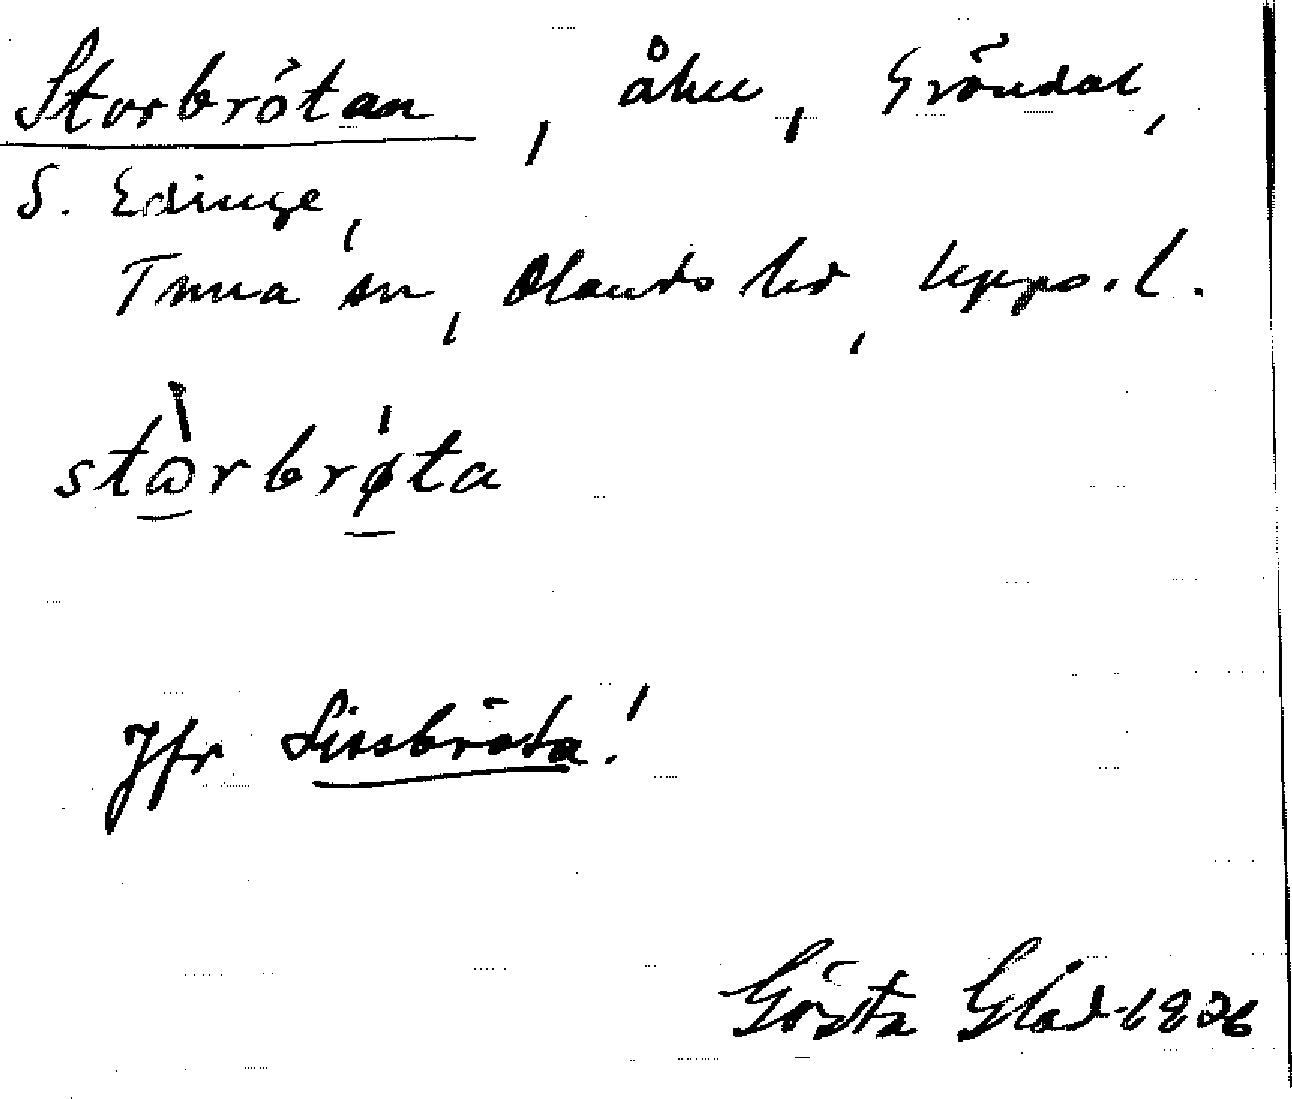 Storbrötan, åker, Gröndal,
S. Edinge,
Tuna sn, Olands hd, Upps. l.
stωrbrøta
Jfr Lissbröta!
Gösta Glad 1926